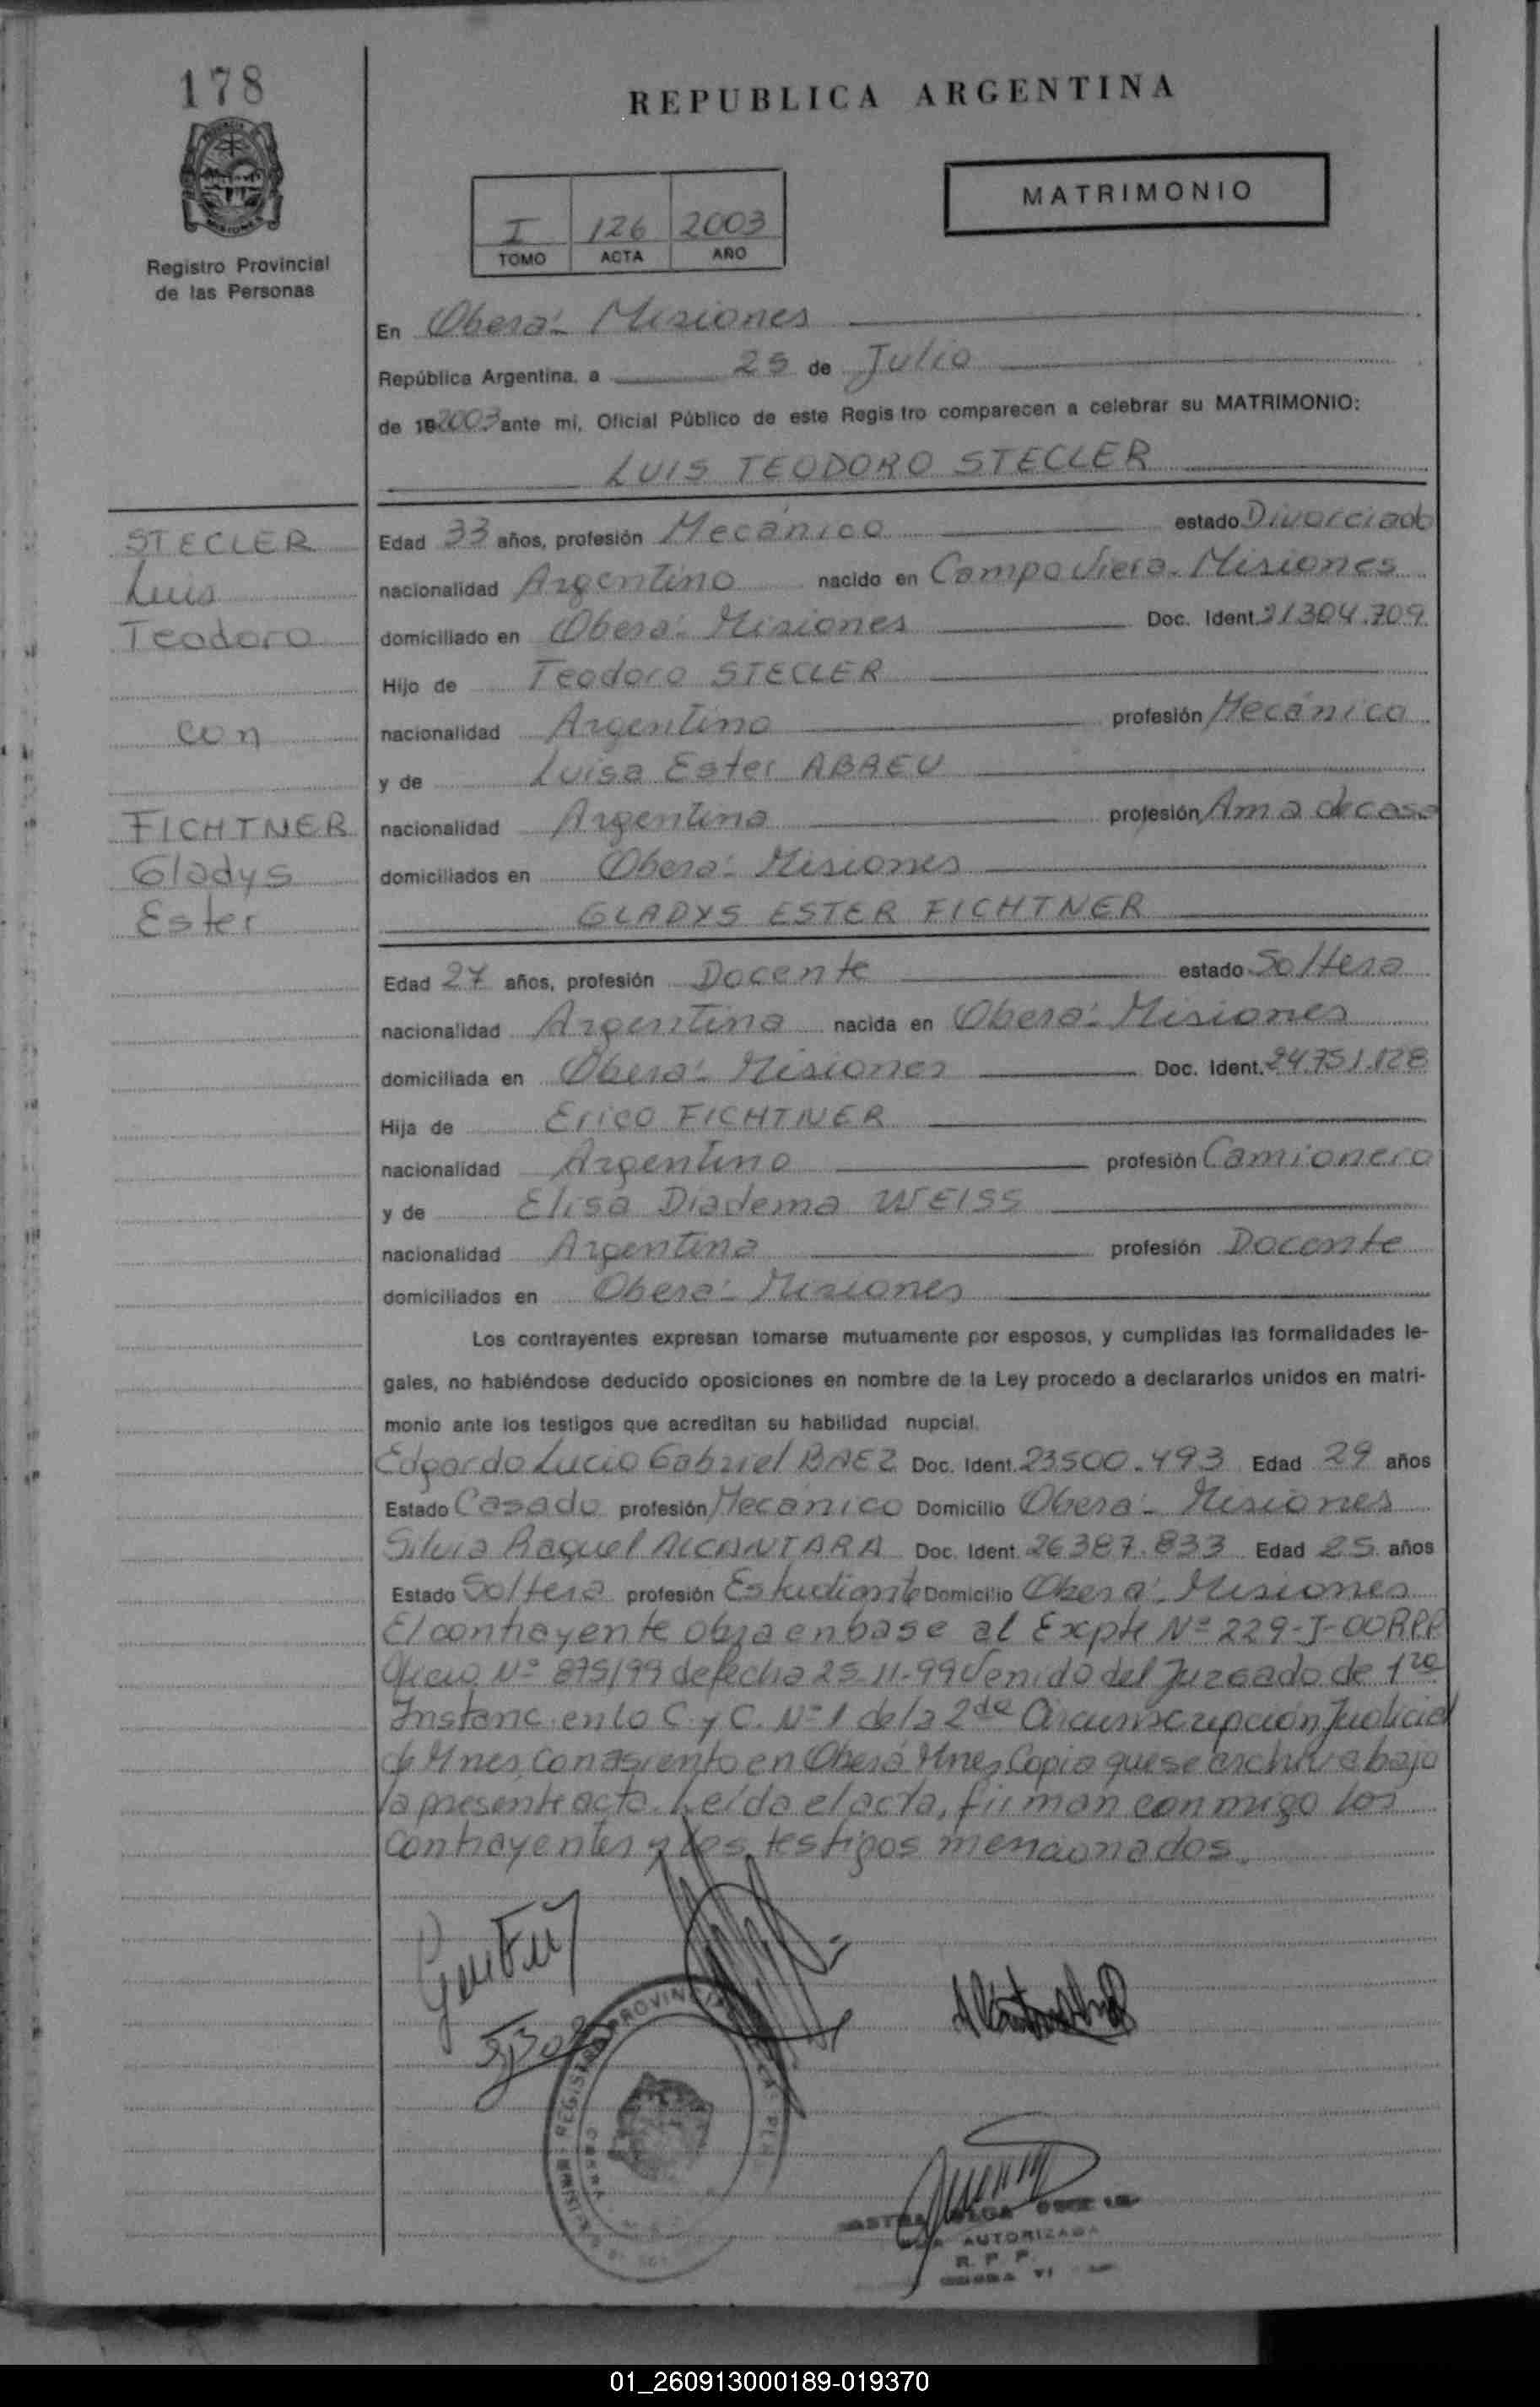 178
REPUBLICA ARGENTINA
MATRIMONIO
I 126 2003
TOMO ACTA AÑO
Registro Provincial
de las Personas
En Oberá - Misiones
República Argentina, a 25 de Julio
de 192003 ante mi, Oficial Público de este Registro comparecen a celebrar su MATRIMONIO:
LUIS TEODORO STECLER
STECLER
Luis
Teodoro
con
FICHTNER
Gladys
Ester
Edad 33 años, profesión Mecánico estado Divorciado
nacionalidad Argentino nacido en Campo Viera - Misiones
domiciliado en Oberá - Misiones Doc. Ident. 21.304.709
Hijo de Teodoro STECLER
nacionalidad Argentino profesión Mecánico
y de Luisa Ester ABREU
nacionalidad Argentina profesión Ama de casa
domiciliados en Oberá - Misiones
GLADYS ESTER FICHTNER
Edad 27 años, profesión Docente estado Soltera
nacionalidad Argentina nacida en Oberá - Misiones
domiciliada en Oberá - Misiones Doc. Ident. 24.751.128
Hija de Erico FICHTNER
nacionalidad Argentino profesión Camionero
y de Elisa Diadema WEISS
nacionalidad Argentina profesión Docente
domiciliados en Oberá - Misiones
Los contrayentes expresan tomarse mutuamente por esposos, y cumplidas las formalidades le-
gales, no habiéndose deducido oposiciones en nombre de la Ley procedo a declararlos unidos en matri-
monio ante los testigos que acreditan su habilidad nupcial.
Edgardo Lucio Gabriel BAEZ Doc. Ident. 23500.493 Edad 29 años
Estado Casado profesión Mecánico Domicilio Oberá - Misiones
Silvia Raquel ALCANTARA Doc. Ident. 26387.833 Edad 25 años
Estado Soltera profesión Estudiante Domicilio Oberá - Misiones
El contrayente obra en base al Expte Nº 229-J-00 RPP
Oficio Nº 875/99 de fecha 25-11-99 Venido del Juzgado de 1ra
Instanc. en lo C. y C. Nº 1 de la 2da Circunscripción Judicial
de Mnes, con asiento en Oberá Mnes Copia que se archiva bajo
la presente acta. Leída el acta, firman conmigo los
contrayentes y los testigos mencionados.
REGISTRO PROVINCIAL
AUTORIZADA
R. P. P.
01_260913000189-019370